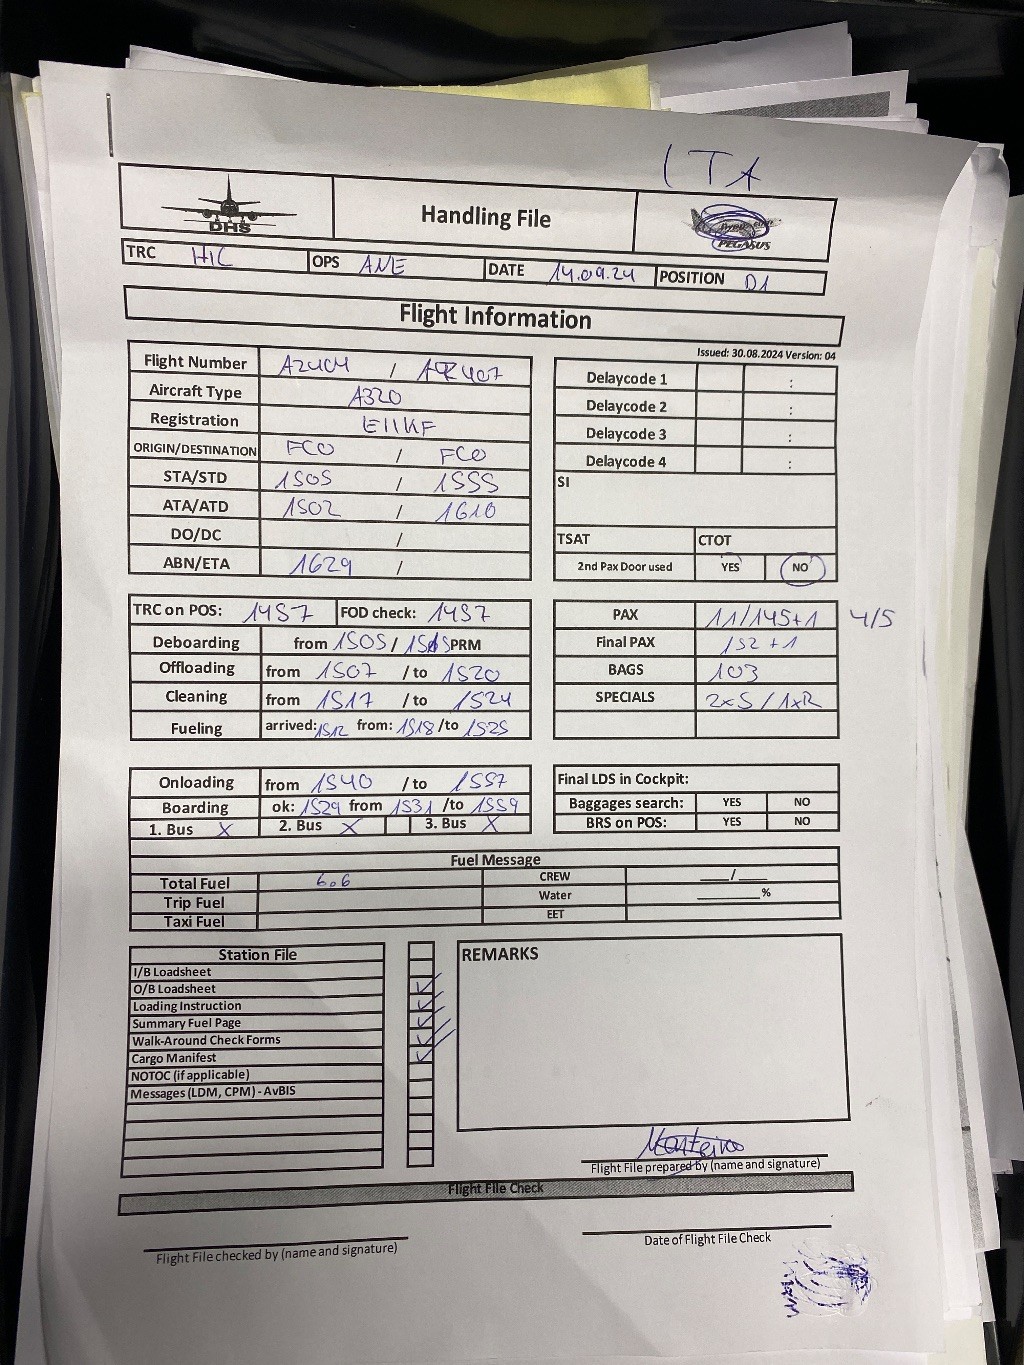 ITA
DHS
Handling File
PEGASUS
TRC HIC OPS ANE DATE 14.09.24 POSITION D1
Flight Information
Issued: 30.08.2024 Version: 04
Flight Number AZ404 / AZ407
Aircraft Type A320
Registration EIIKF
ORIGIN/DESTINATION FCO / FCO
STA/STD 1505 / 1555
ATA/ATD 1502 / 1610
DO/DC /
ABN/ETA 1629 /
Delaycode 1 :
Delaycode 2 :
Delaycode 3 :
Delaycode 4 :
SI
TSAT CTOT
2nd Pax Door used YES NO
TRC on POS: 1457 FOD check: 1457
Deboarding from 1505 / PRM
Offloading from 1507 / to 1520
Cleaning from 1517 / to 1524
Fueling arrived: 1512 from: 1518 /to 1525
PAX 11/145+1 4/5
Final PAX 152 +1
BAGS 103
SPECIALS 2xS / 1xR
Onloading from 1540 / to 1557
Boarding ok: 1529 from 1531 /to 1559
1. Bus X 2. Bus X 3. Bus X
Final LDS in Cockpit:
Baggages search: YES NO
BRS on POS: YES NO
Fuel Message
Total Fuel 6.6 CREW ___/___
Trip Fuel Water ______%
Taxi Fuel EET
Station File
I/B Loadsheet
O/B Loadsheet
Loading Instruction
Summary Fuel Page
Walk-Around Check Forms
Cargo Manifest
NOTOC (if applicable)
Messages (LDM, CPM) - AvBIS
REMARKS
Monteiro
Flight File prepared by (name and signature)
Flight File Check
Flight File checked by (name and signature)
Date of Flight File Check